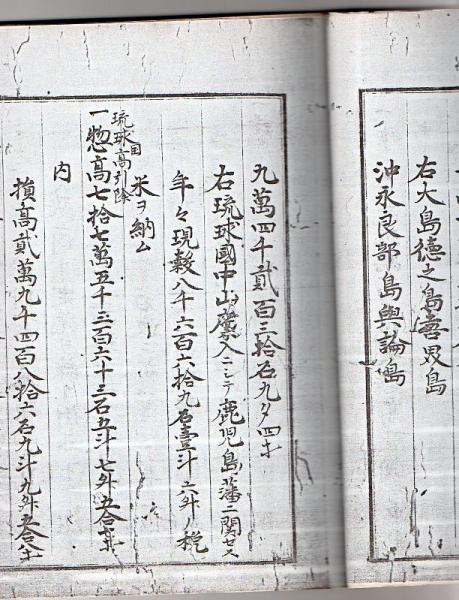 右大島徳之島喜界島
沖永良部島與論島
九萬四千貳百三拾石九夕四才
右琉球國中山慶入ニシテ鹿児島藩ニ関セス
年々現穀八千六百六拾九石壹斗六升ノ税
米ヲ納ム
琉球国高引除
一惣高七拾七萬五千三百六十三石五斗七升五合
内
損高貳萬九千四百八拾六石九斗九升五合